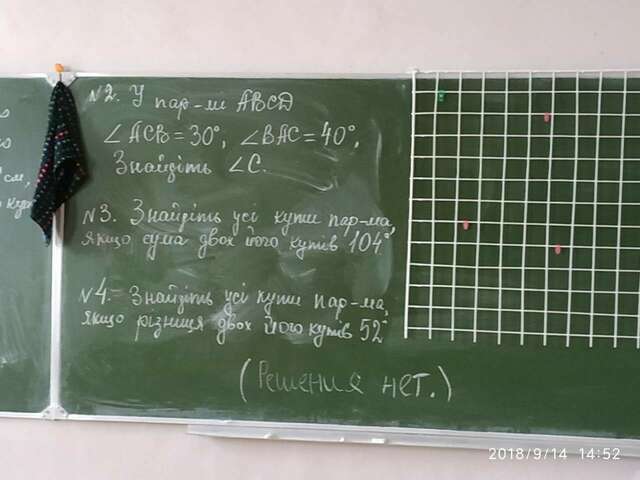 №2. У пар-мі ABCD
∠ACB = 30°, ∠BAC = 40°,
Знайдіть ∠C.
№3. Знайдіть усі кути пар-ма,
якщо сума двох його кутів 104°
№4. Знайдіть усі кути пар-ма,
якщо різниця двох його кутів 52°
(Решения нет.)
см,
2018/9/14 14:52